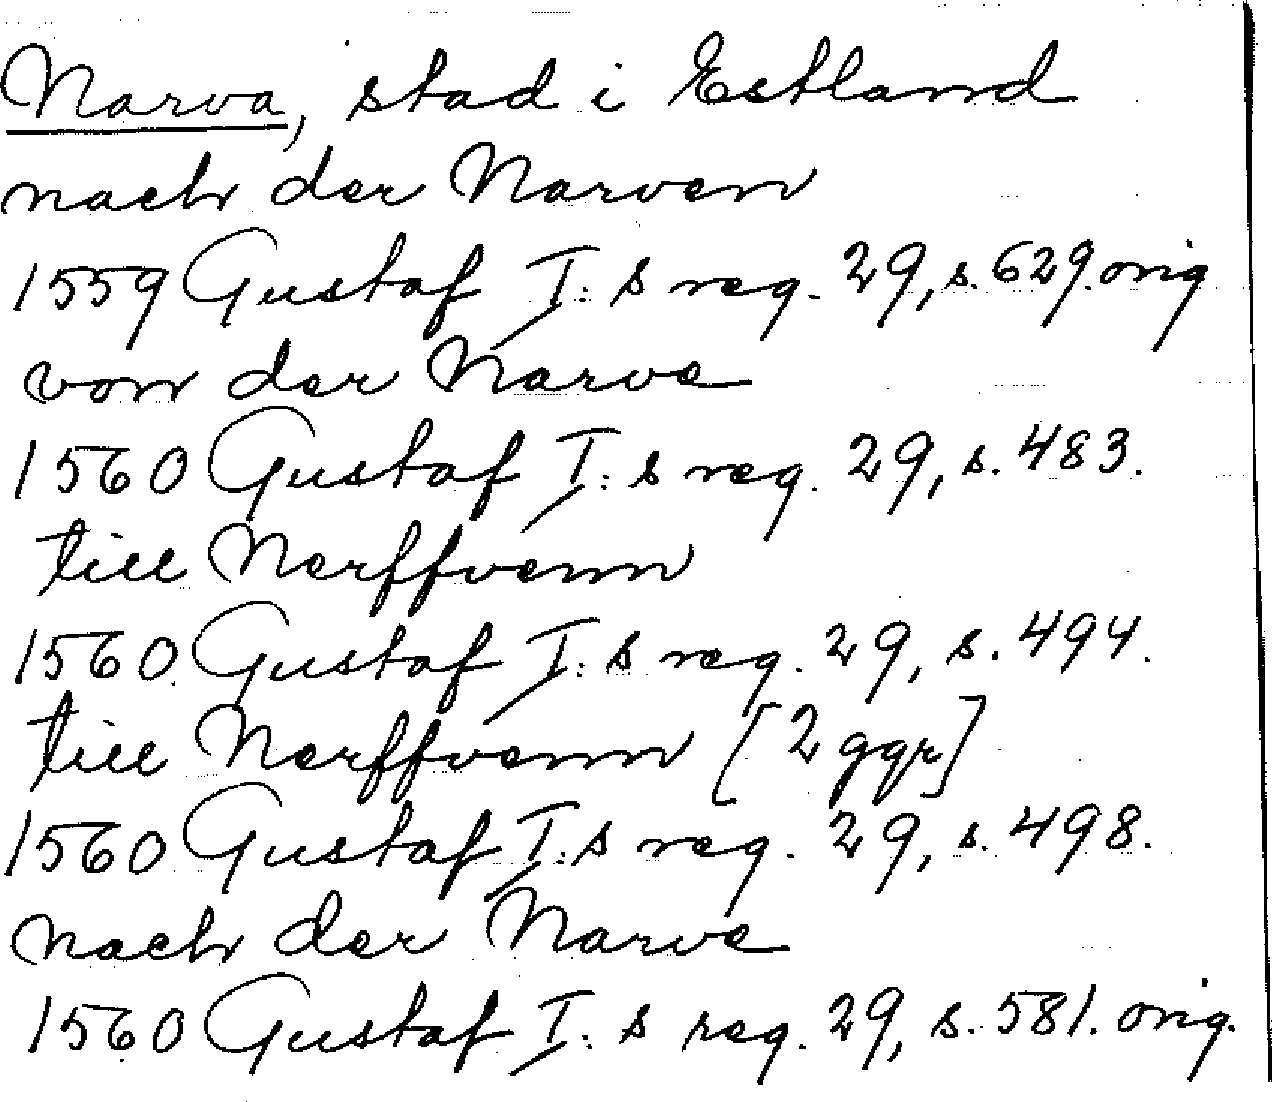 Narva, stad i Estland
nach der Narven
1559 Gustaf I:s reg. 29, s. 629. orig
von der Narve
1560 Gustaf I:s reg. 29, s. 483.
till Nerffvenn
1560 Gustaf I:s reg. 29, s. 494.
till Nerffvenn [2 ggr]
1560 Gustaf I:s reg. 29, s. 498.
nach der Narve
1560 Gustaf I:s reg. 29, s. 581. orig.